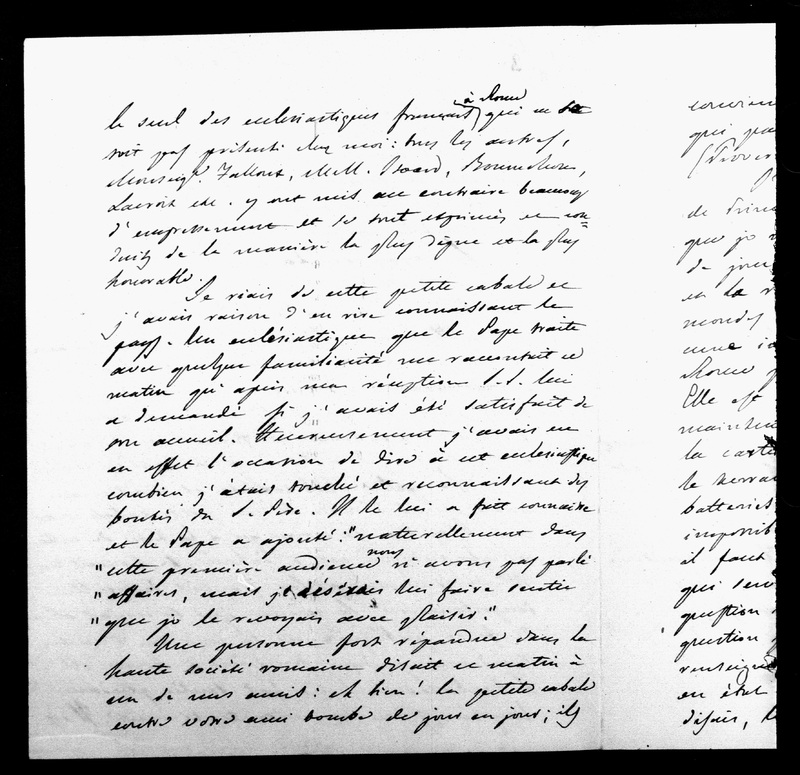 le seul des ecclésiastiques français à Rome qui ne se
soit pas présenté chez moi: tous les autres,
Monseigr. Falloux, M.M. Bonnechose,
Lacroix etc. y ont mis au contraire beaucoup
d'empressement et se sont exprimés et con=
duits de la manière la plus digne et la plus
honorable.
Je riais de cette petite cabale et
j'avais raison d'en rire connaissant le
pays. Un ecclésiastique que le Pape traite
avec quelque familiarité me racontait ce
matin qu'après ma réception S.S. lui
a demandé si j'avais été satisfait de
son accueil. Heureusement j'avais eu
en effet l'occasion de dire à cet ecclésiastique
combien j'étais touché et reconnaissant des
bontés du S. Père. Il le lui a fait connaître
et le Pape a ajouté: "naturellement dans
"cette première audience nous n'avons pas parlé
"affaires, mais je désirais lui faire sentir
"que je le revoyais avec plaisir."
Une personne fort répandue dans la
haute société romaine disait ce matin à
un de mes amis: eh bien! la petite cabale
contre votre ami tombe de jour en jour; ils
qui
de
que je
de jour
et la
mondes
une
Rome
Elle est
la
le
batteries
il faut
qui
question
question
en état